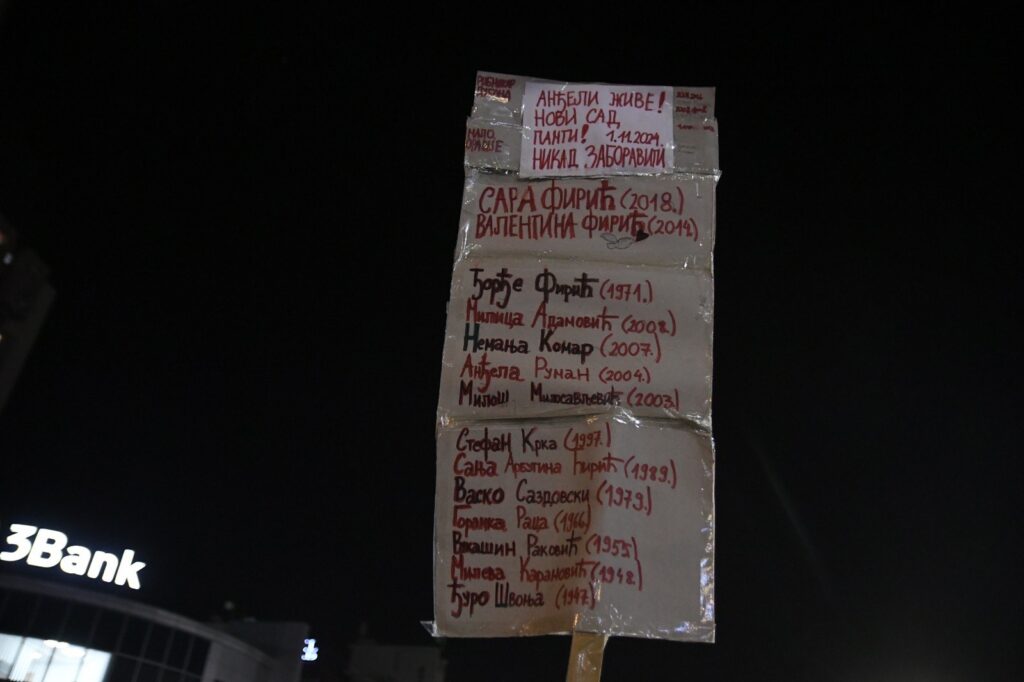 АНЂЕЛИ ЖИВЕ!
НОВИ САД
ПАМТИ! 1.11.2024.
НИКАД ЗАБОРАВИТИ
САРА ФИРИЋ (2018.)
ВАЛЕНТИНА ФИРИЋ (2014.)
Ђорђе Фирић (1971.)
Милица Адамовић (2008.)
Немања Комар (2007.)
Анђела Руман (2004.)
Милош Милосављевић (2003.)
Стефан Крка (1997.)
Сања Арбутина Ћирић (1989.)
Васко Саздовски (1979.)
Горанка Раца (1966)
Вукашин Раковић (1955)
Милева Карановић (1948.)
Ђуро Швоња (1947.)
3Bank